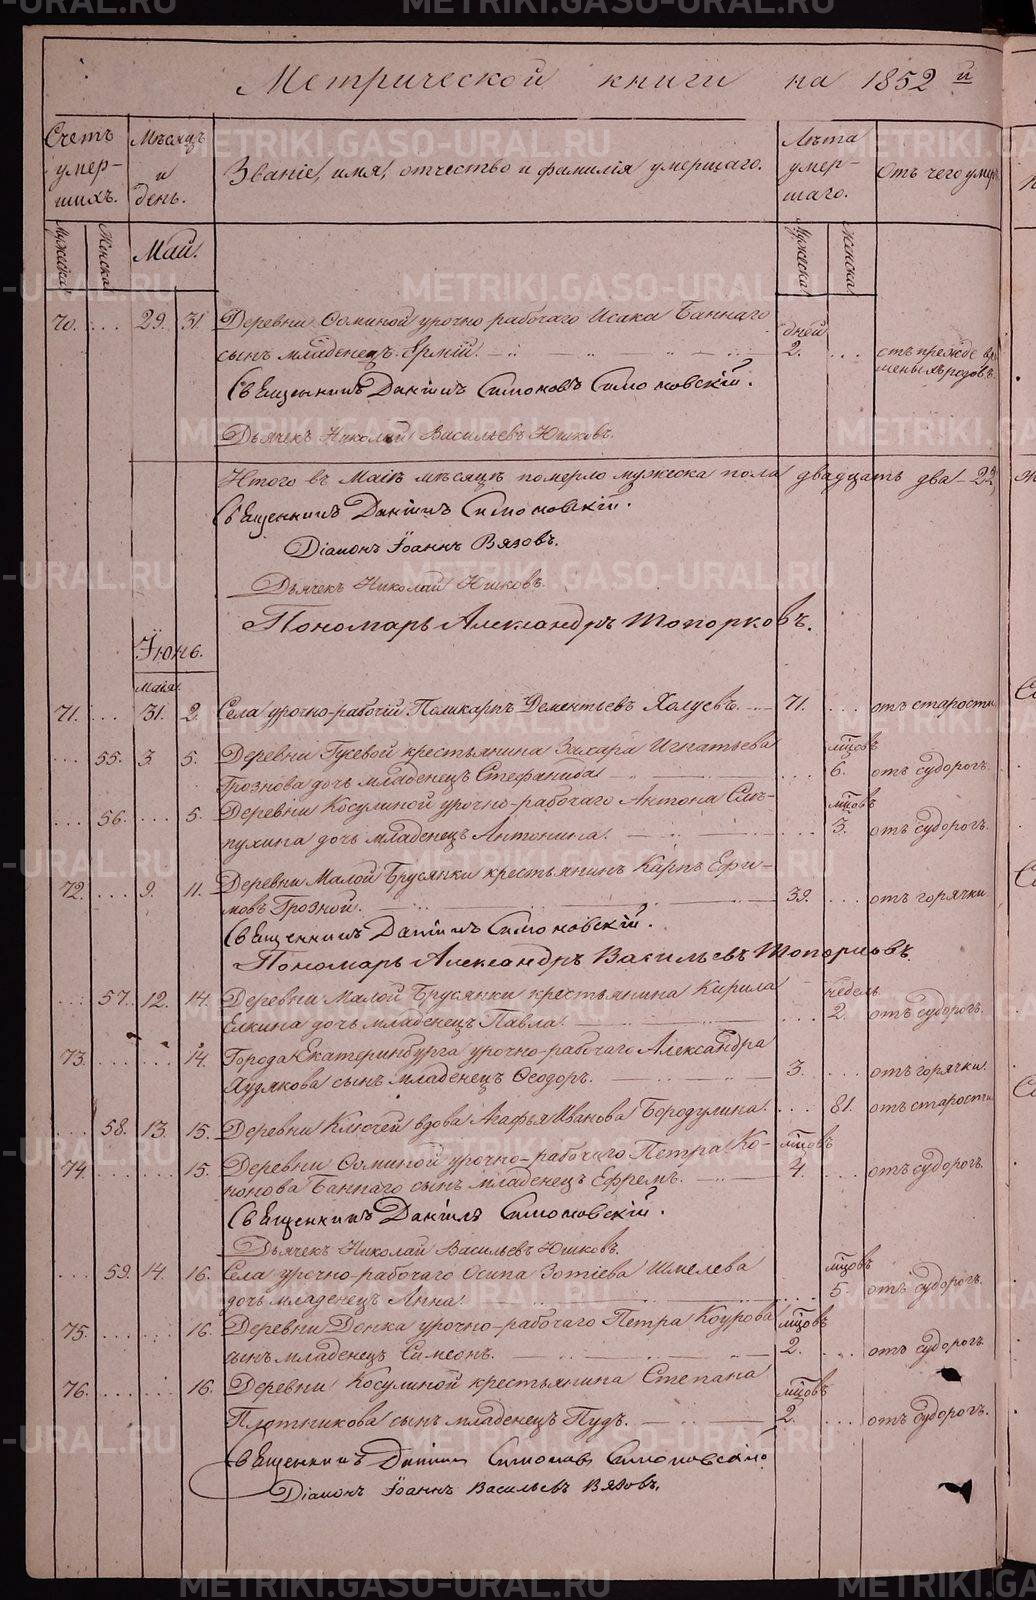 Метрической книги на 1852й
Счетъ умер-шихъ.
Мѣсяцъ и день.
Званіе, имя, отчество и фамилія умершаго.
Лѣта умер-шаго.
Отъ чего умеръ
Мужеска
Женска
Май.
Мужеска
Женска
70. ... 29. 31. Деревни Фоминой урочно рабочаго Исака Баннаго
дней
сынъ младенецъ Ермій. 2. ... отъ прежде вре
меныхъ родовъ.
Священникъ Даніилъ Симоновъ Симоновскій.
Дьячекъ Николай Васильевъ Юшковъ.
Итого въ Маіѣ мѣсяцѣ померло мужеска пола двадцать два - 22,
Священникъ Даніилъ Симоновскій.
Діаконъ Іоаннъ Вязовъ.
Дьячекъ Николай Юшковъ.
Пономарь Александръ Топорковъ.
Іюнь.
Майя.
71. ... 31. 2. Села урочно-рабочій Поликарпъ Дементьевъ Холуевъ. 71. ... отъ старости
... 55. 3 5. Деревни Гусевой крестьянина Захара Игнатьева мцовъ
Грознова дочь младенецъ Стефанида ... 6. отъ судорогъ.
... 56. ... 5. Деревни Косулиной урочно-рабочаго Антона Слѣ- мцовъ
пухина дочь младенецъ Антонина. ... 3. отъ судорогъ.
72. ... 9. 11. Деревни Малой Брусянки крестьянинъ Карпъ Ефи-
мовъ Грозной. 39. ... отъ горячки
Священникъ Даніилъ Симоновскій.
Пономарь Александръ Васильевъ Топорковъ.
... 57. 12. 14. Деревни Малой Брусянки крестьянина Кирила недель
Елкина дочь младенецъ Павла. ... 2. отъ судорогъ.
73. ... 14. Города Екатеринбурга урочно-рабочаго Александра
Худякова сынъ младенецъ Феодоръ. 3. ... отъ горячки.
... 58. 13. 15. Деревни Ключей вдова Агафья Иванова Бородулина. ... 81. отъ старости
74. ... 15. Деревни Фоминой урочно-рабочаго Петра Ко- мцовъ
нонова Баннаго сынъ младенецъ Ефремъ. 4. ... отъ судорогъ.
Священникъ Даніилъ Симоновскій.
Дьячекъ Николай Васильевъ Юшковъ.
... 59. 14. 16. Села урочно-рабочаго Осипа Зотіева Шмелева мцовъ
дочь младенецъ Анна. ... 5. отъ судорогъ.
75. ... 16. Деревни Донка урочно-рабочаго Петра Коурова мцовъ
сынъ младенецъ Симеонъ. 2. ... отъ судорогъ
76. ... 16. Деревни Косулиной крестьянина Степана мцовъ
Плотникова сынъ младенецъ Пудъ. 2. ... отъ судорогъ.
Священникъ Даніилъ Симоновъ Симоновскій.
Діаконъ Іоаннъ Васильевъ Вязовъ.
METRIKI.GASO-URAL.RU